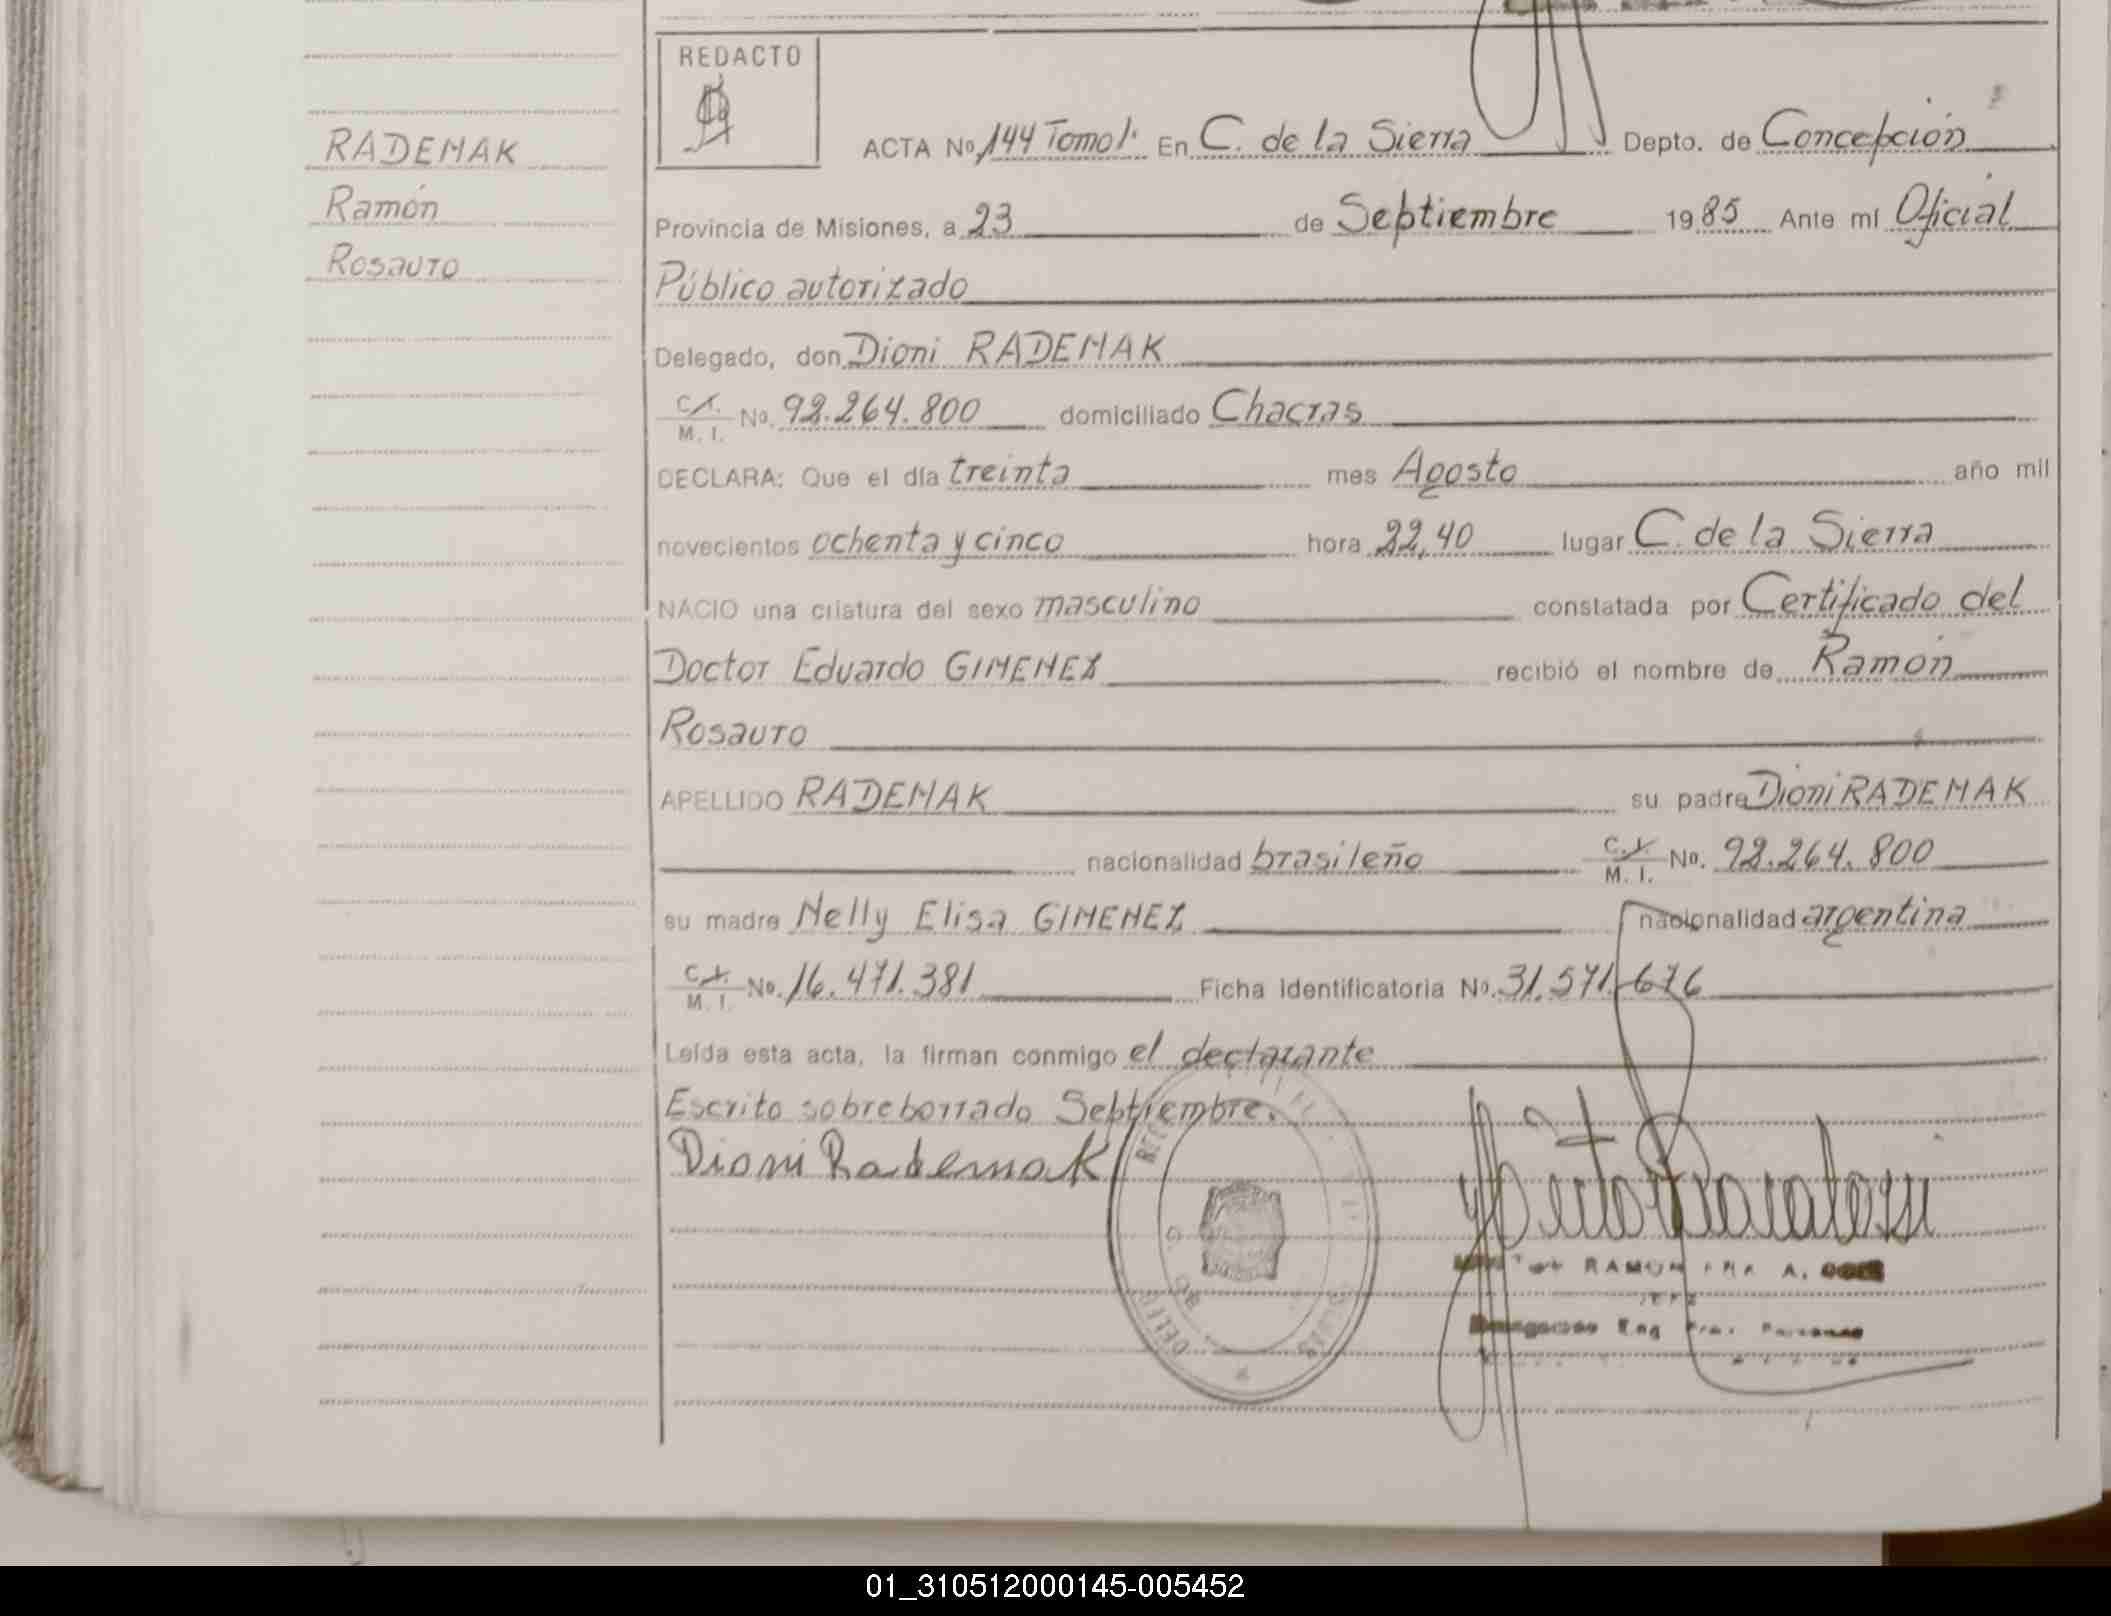 REDACTO
ACTA No. 144 Tomo 1. En C. de la Sierra Depto. de Concepción
RADEMAK
Ramón
Rosauro
Provincia de Misiones, a 23 de Septiembre 1985 Ante mí Oficial
Público autorizado
Delegado, don Dioni RADEMAK
C.I. M. I. No. 92.264.800 domiciliado Chacras
DECLARA: Que el día treinta mes Agosto año mil
novecientos ochenta y cinco hora 22,40 lugar C. de la Sierra
NACIO una criatura del sexo masculino constatada por Certificado del
Doctor Eduardo GIMENEZ recibió el nombre de Ramón
Rosauro
APELLIDO RADEMAK su padre Dioni RADEMAK
nacionalidad brasileño C.I. M. I. No. 92.264.800
su madre Nelly Elisa GIMENEZ nacionalidad argentina
C.I. M. I. No. 16.471.381 Ficha Identificatoria No. 31.571.676
Leída esta acta, la firman conmigo el declarante
Escrito sobreborrado Septiembre.
Dioni Rademak
RAMON
01_310512000145-005452